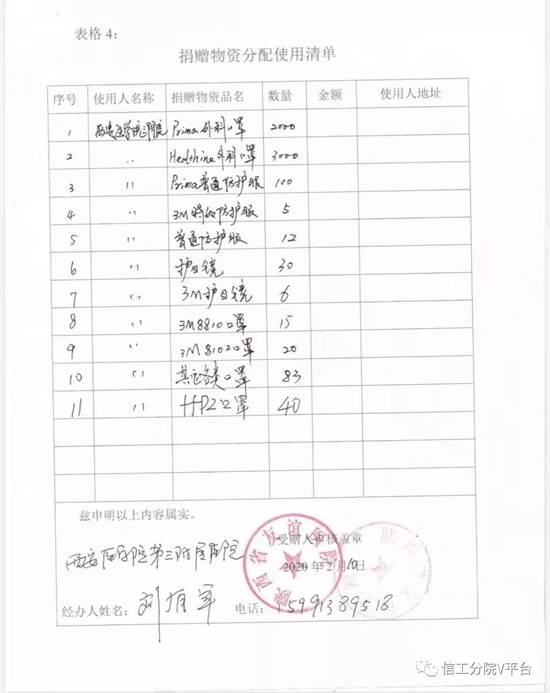 表格 4：
捐赠物资分配使用清单
序号 使用人名称 捐赠物资品名 数量 金额 使用人地址
1 Prima外科口罩 2000
2 〃 Healthina外科口罩 3000
3 〃 Prima普通防护服 100
4 〃 3M特级防护服 5
5 〃 普通防护服 12
6 〃 护目镜 30
7 〃 3M护目镜 6
8 〃 3M8810口罩 15
9 〃 3M8102口罩 20
10 〃 其它各类口罩 83
11 〃 口罩 40
兹申明以上内容属实。
受赠人审核盖章
西安医学院第三附属医院
陕西省友谊医院
2020年2月10日
经办人姓名： 刘有军 电话：15991389518
信工分院V平台